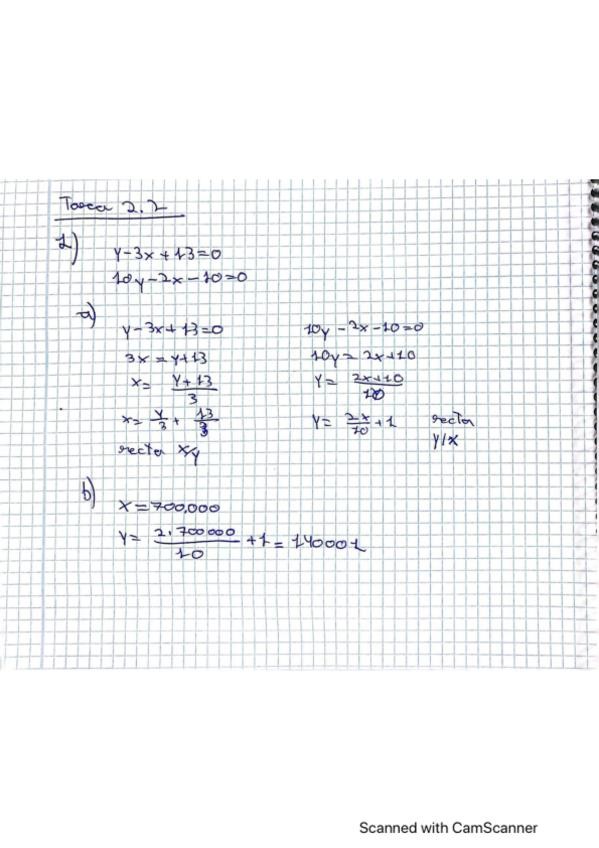 Tarea 2.2
1)
y-3x+13=0
10y-2x-10=0
a)
y-3x+13=0
3x=y+13
x= y+13/3
x= y/3 + 13/3
recta x/y
10y-2x-10=0
10y=2x+10
y= 2x+10/10
y= 2x/10 + 1 recta
y/x
b)
x=700,000
y= 2.700000/10 +1 = 140001
Scanned with CamScanner